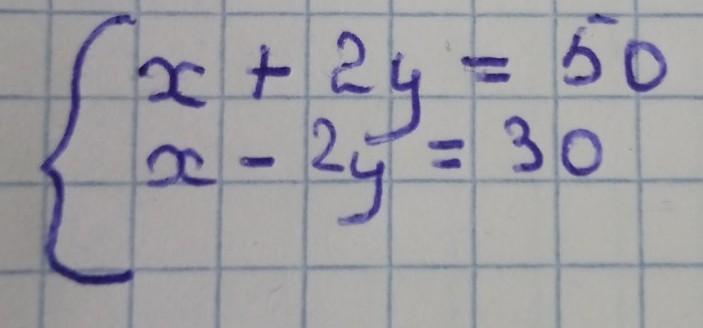 x + 2y = 50
x - 2y = 30